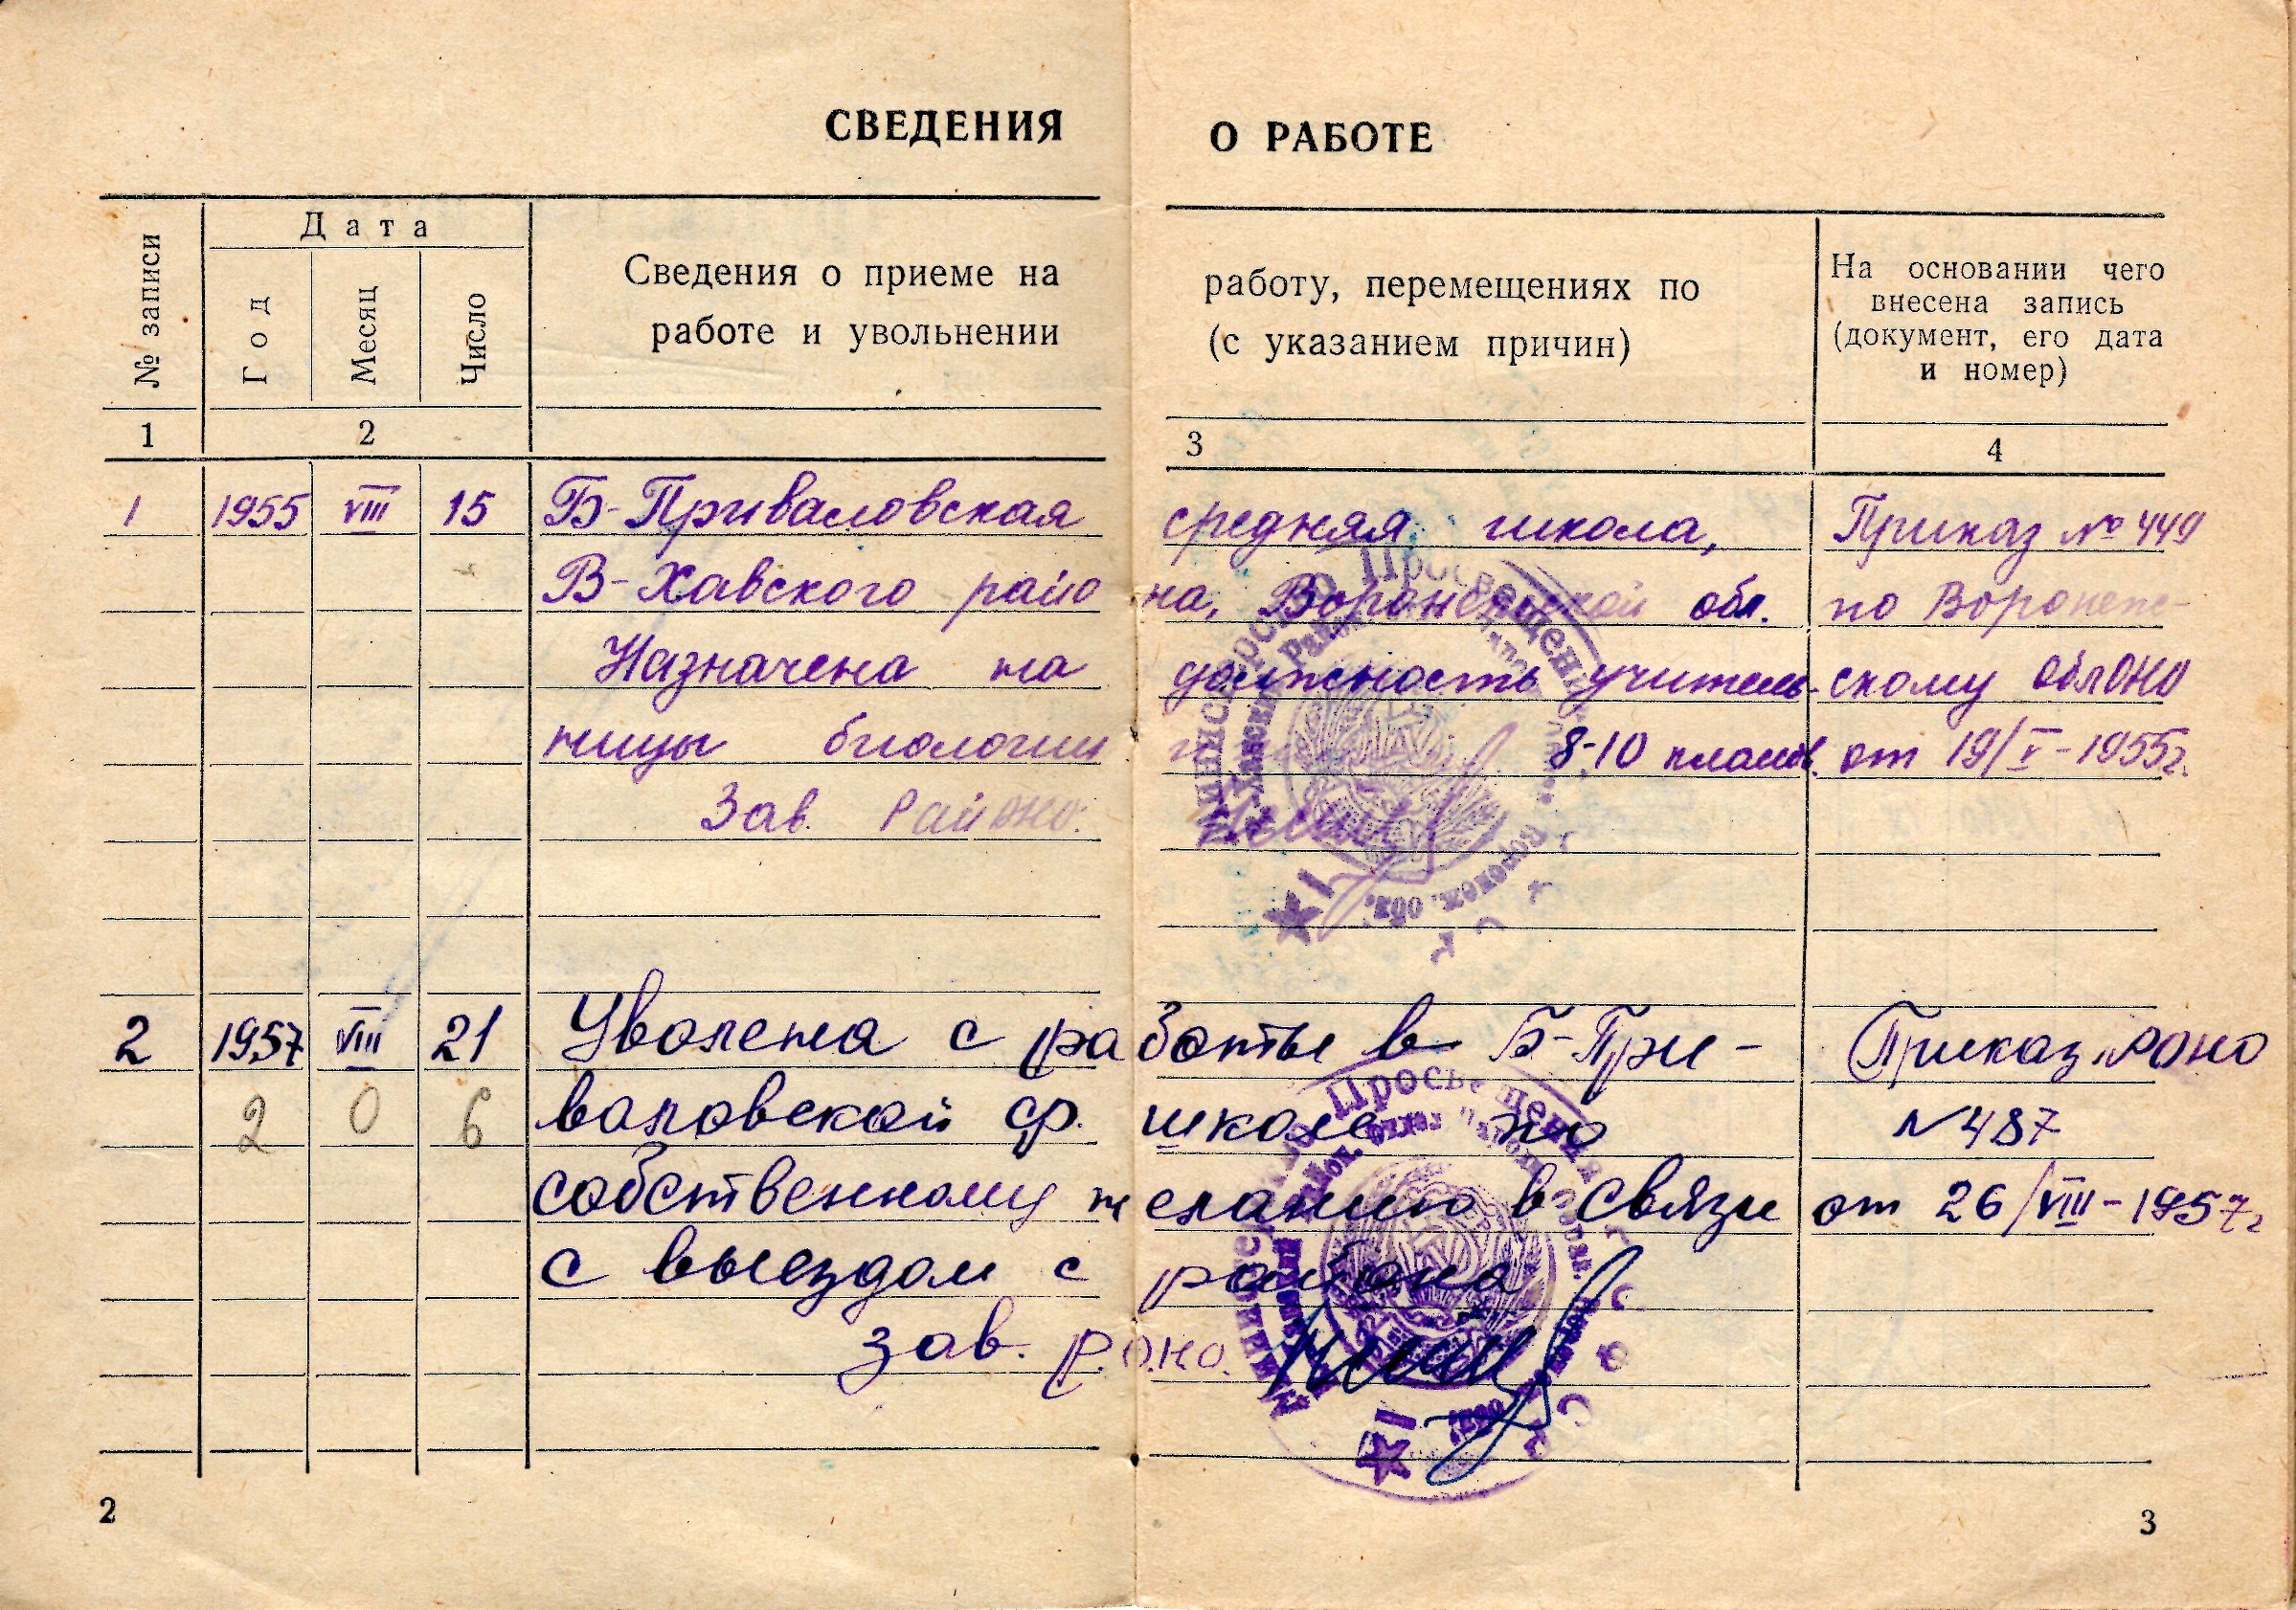 СВЕДЕНИЯ О РАБОТЕ
№ записи
Дата
Год
Месяц
Число
Сведения о приеме на работу, перемещениях по
работе и увольнении (с указанием причин)
На основании чего
внесена запись
(документ, его дата
и номер)
1 2 3 4
1 1955 VIII 15 Б-Приваловская средняя школа, Приказ № 449
В-Хавского района, Воронежской обл. по Воронеж-
Назначена на должность учитель- скому облоно
ницы биологии 8-10 классов. от 19/V-1955г.
Зав. Районо.
2 1957 VIII 21 Уволена с работы в Б-При- Приказ РОНО
2 0 6 валовской ср. школе по №487
собственному желанию в связи от 26/VIII-1957г
с выездом с района
Зав. р.о.но.
Просвещения
обл.
Просвещения
2
3